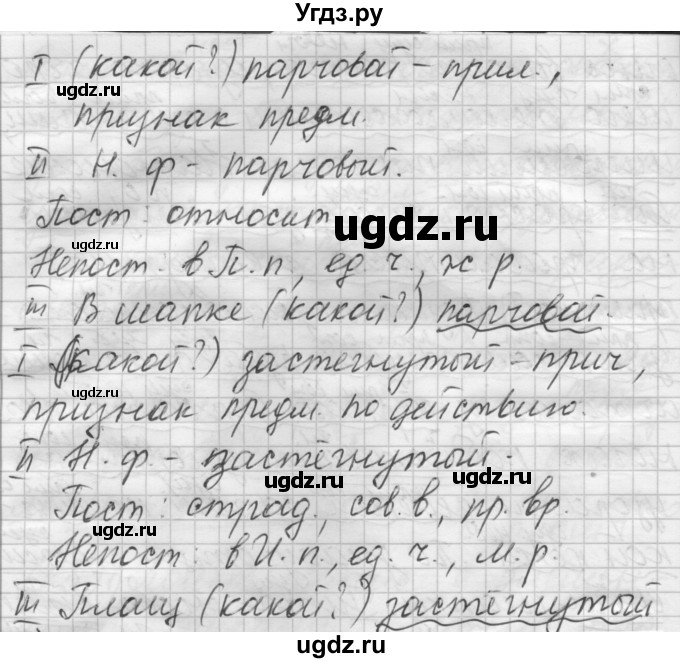 Угдз.ру
I (какой?) парчовай – прил.,
ugdz.ru
признак предм.
II Н. ф – парчовый.
Пост: относит.
ugdz.ru
ugdz.ru
Непост: в П. п., ед. ч., ж р.
III В шапке (какой?) парчовай.
I (какой?) застегнутый – прич,
ugdz.ru
признак предм. по действию.
II Н. ф. – застёгнутый.
ugdz.ru
ugdz.ru
Пост: страд., сов. в., пр. вр.
Непост: в И. п., ед. ч., м. р.
ugdz.ru
III Плащ (какой?) застёгнутый
ugdz.ru